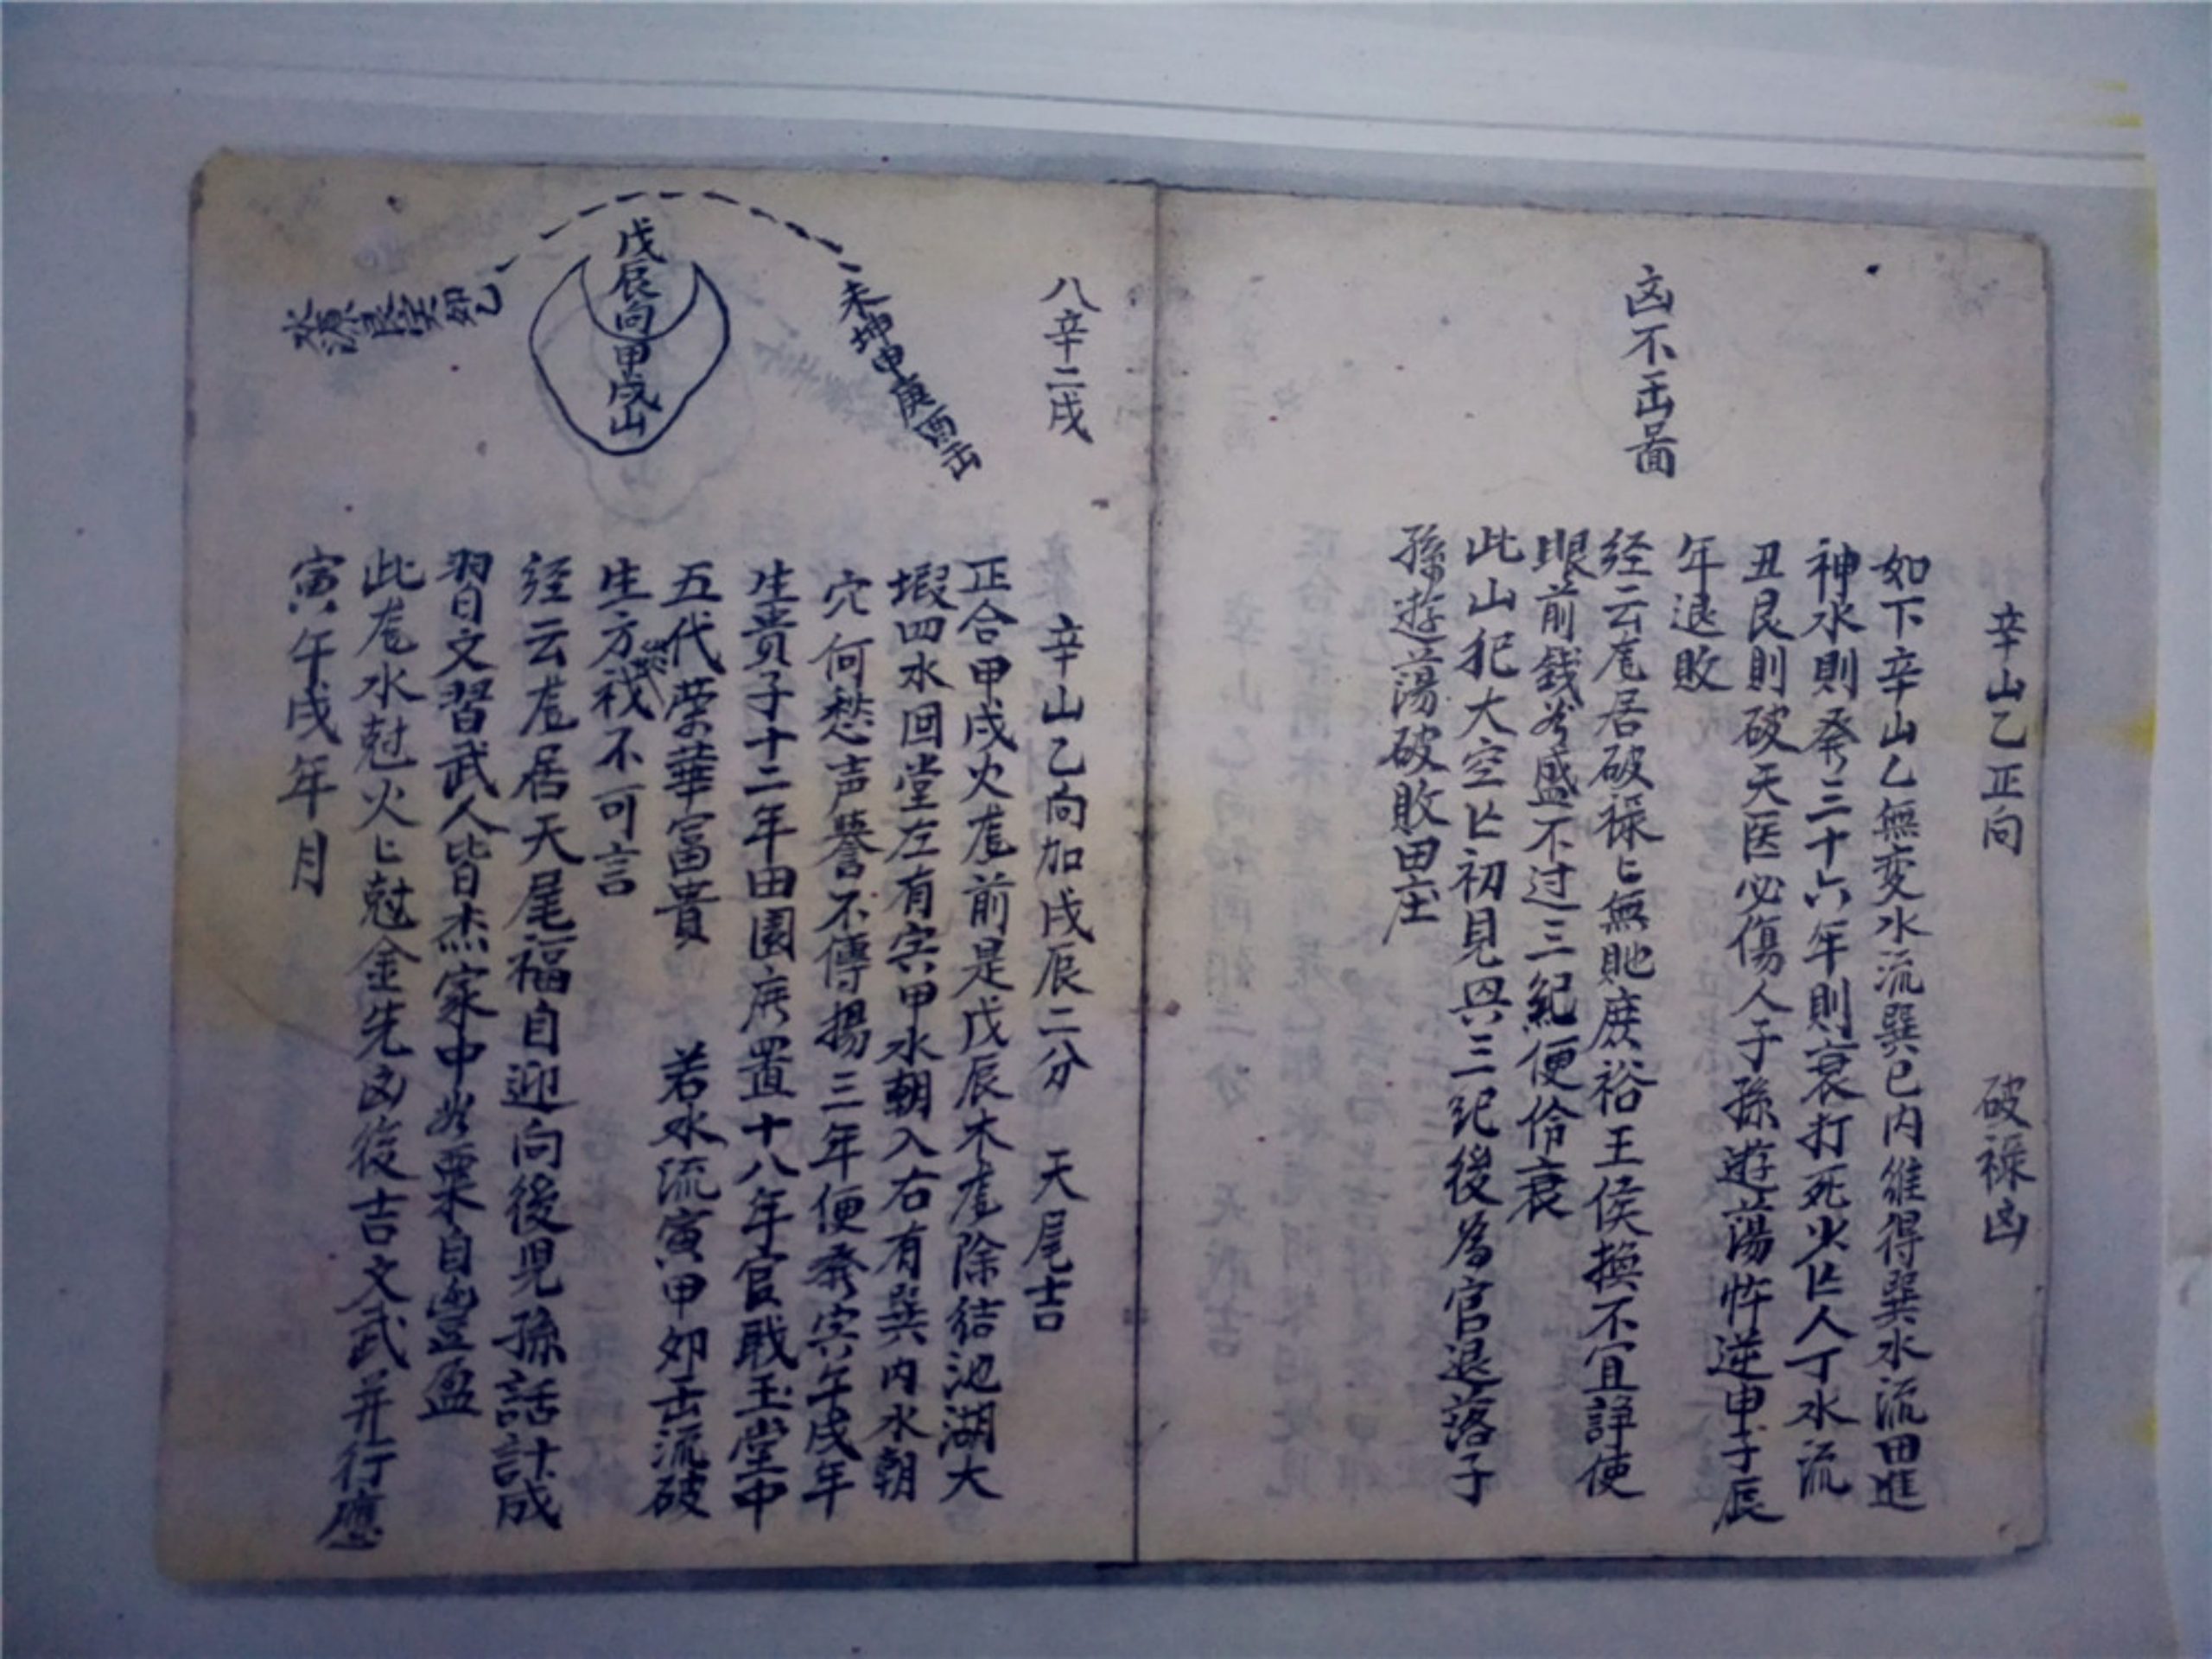 凶不出啚
辛山乙正向　破祿凶
如下辛山乙無変水流巽巳内維得巽水流田進
神水則癸三十六年則衰打死火亡人丁水流
丑艮則破天医必傷人子孫遊蕩忤逆申子辰
年退敗
经云庬居破祿ヒ無貤庻裕王侯換不宜諍使
眼前錢岁盛不过三紀便伶衰
此山犯大空亡初見興三紀後為官退落子
孫遊蕩破敗田庄
八辛二戌
辛山乙向加戌辰二分　天尾吉
正合甲戌火庬前是戊辰木庬除结池湖大
塅四水回堂左有寅甲水朝入右有巽内水朝
穴何愁声譽不傳揚三年便癸寅午戌年
生贵子十二年田園庻置十八年官戢玉堂中
五代荣華富貴　若水流寅甲卯去流破
生方禍不可言
经云庬居天尾福自迎向後児孫話計成
習文習武人皆杰家中岁粟自豊盈
此庬水尅火ヒ尅金先凶後吉文武并行應
寅午戌年月
戊辰向甲戌山
未坤申庚酉去
水源艮寅卯乙